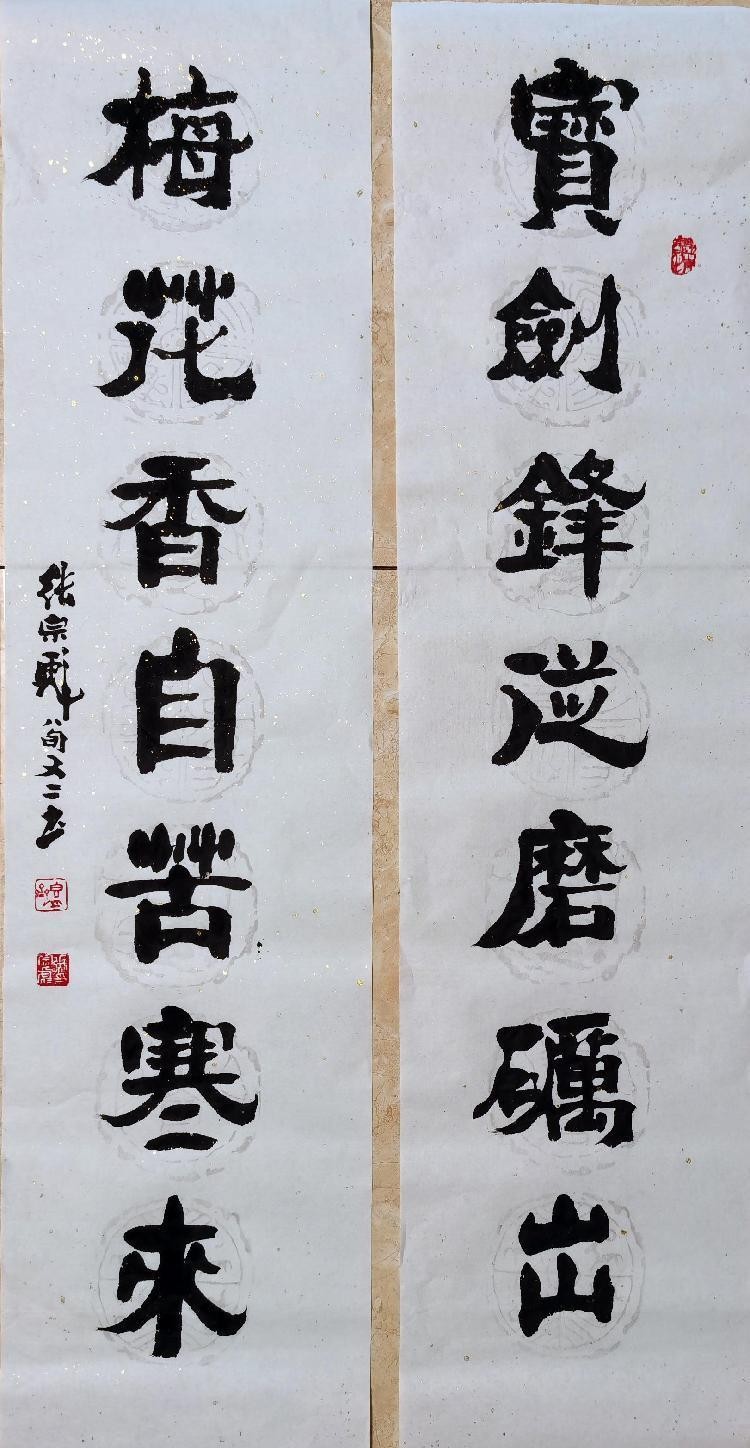 寶劍鋒從磨礪出
梅花香自苦寒來
張宗彪八旬又二书